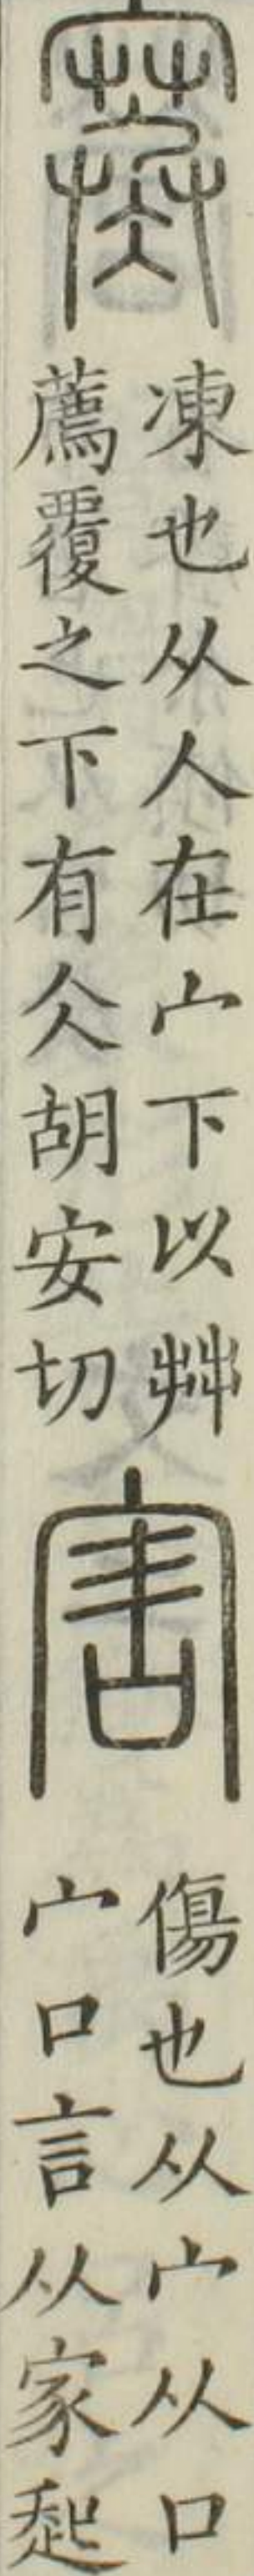 寒
凍也从人在宀下以茻
薦覆之下有仌胡安切
害
傷也从宀从口
宀口言从家起